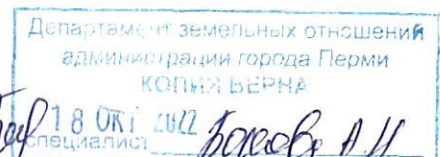 Департамент земельных отношений
администрации города Перми
КОПИЯ ВЕРНА
18 ОКТ 2022
специалист А И